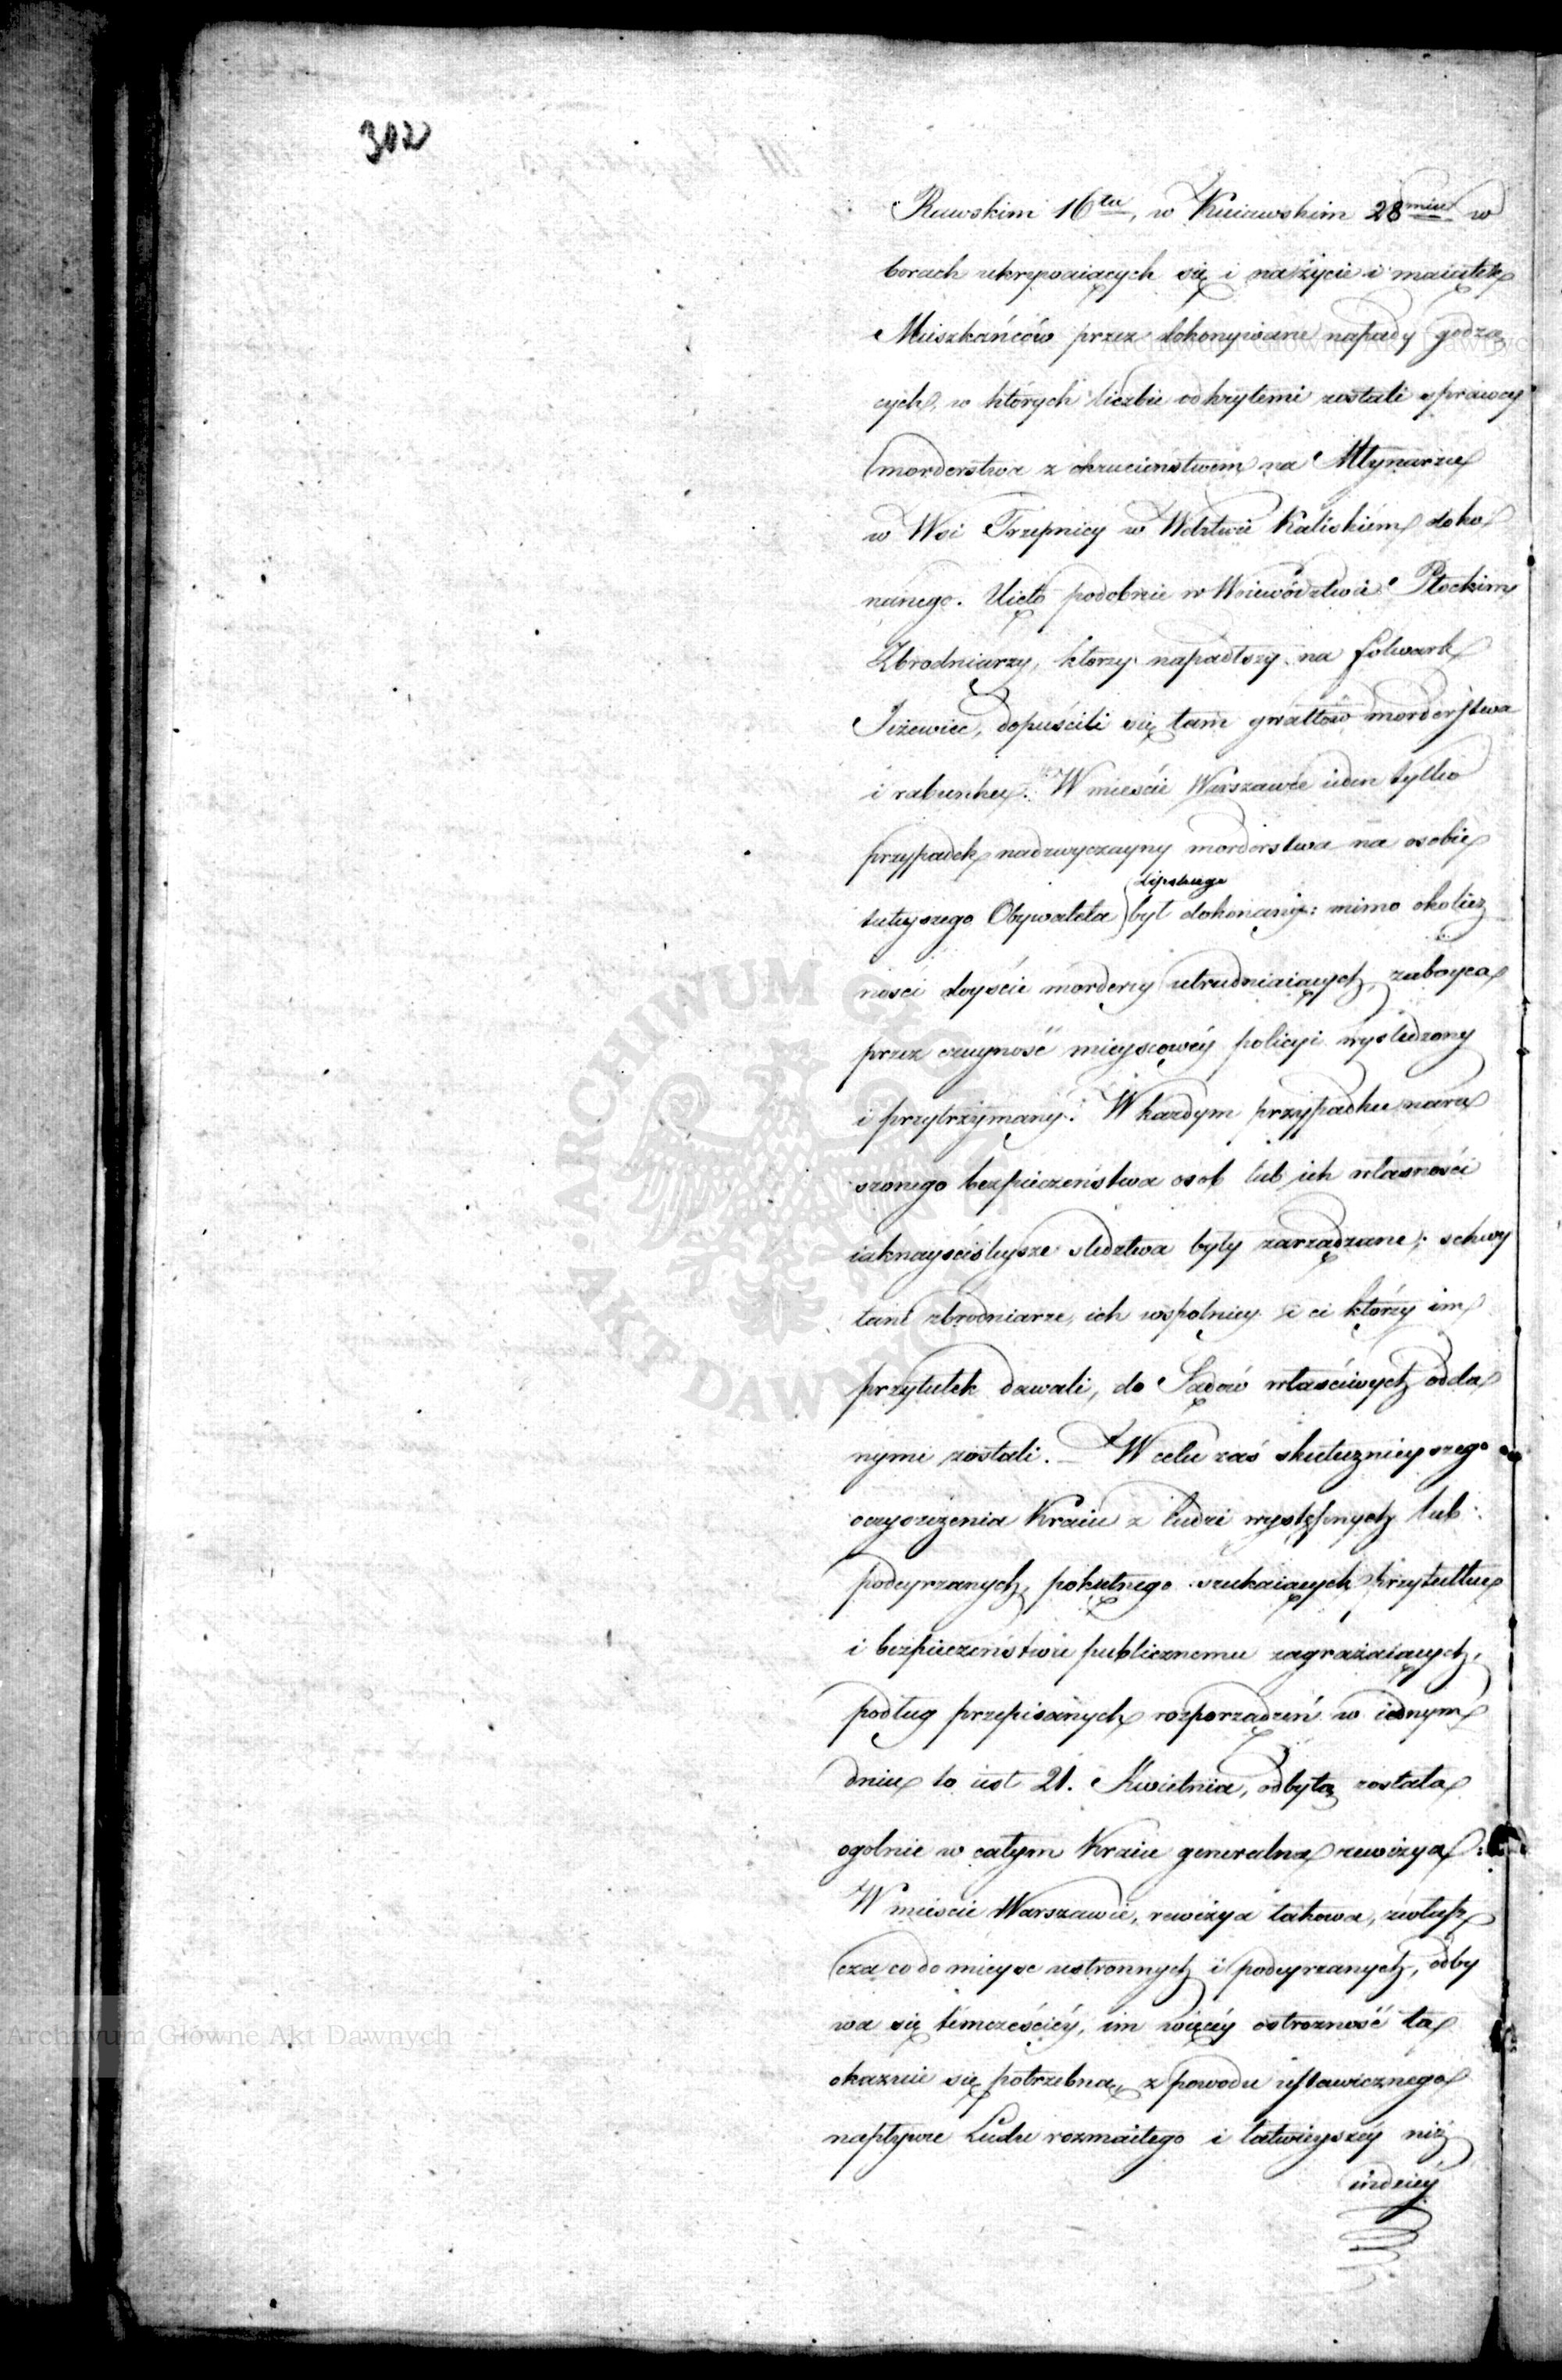 302
Rawskim 16tu, w Kuiawskim 28miu w
borach ukrywaiących się i na życie i maiątek
Mieszkańców przez dokonywane napady godzą
cych, w których liczbie odkrytemi zostali sprawcy
morderstwa z okrucieństwem na Młynarzu
w Wsi Trzepnicy w Wdztwie Kaliskiém doko
nanego. Uięto podobnie w Woiewództwie Płockim
Zbrodniarzy, którzy napadłszy na folwark
Jżewiec, dopuścili się tam gwałtów morderstwa
i rabunku. W mieście Warszawie ieden tylko
przypadek nadzwyczayny morderstwa na osobie
Lipskiego
tuteyszego Obywatela był dokonany: mimo okolicz
ności doyście mordercy utrudniaiących, zaboyca
przez czuyność mieyscowéy policyi wyśledzony
i przytrzymany. W każdym przypadku naru
szonego bezpieczeństwa osob lub ich własności
iaknayściśleysze śledztwa były zarządzane; schwy
tani zbrodniarze, ich wspolnicy i ci którzy im
przytułek dawali, do Sądów właściwych odda
nymi zostali. W celu zaś skutecznieyszego
oczyszczenia Kraiu z ludzi występnych lub
podeyrzanych, pokątnego szukaiących przytułku
i bezpieczeństwu publicznemu zagrażaiących,
podług przepisanych rozporządzeń w iednym
dniu to iest 21. Kwietnia, odbytą została
ogolnie w całym Kraiu generalna rewizya:
W mieście Warszawie, rewizya takowa, zwłasz
cza co do mieysc ustronnych i podeyrzanych, odby
wa się témczęściéy, im więcéy ostrożność ta
okazuie się potrzebną, z powodu ustawicznego
napływu Ludu rozmaitego i łatwieyszéy niż
indziéy
Archiwum Główne Akt Dawnych
Archiwum Główne Akt Dawnych
ARCHIWUM GŁÓWNE AKT DAWNYCH